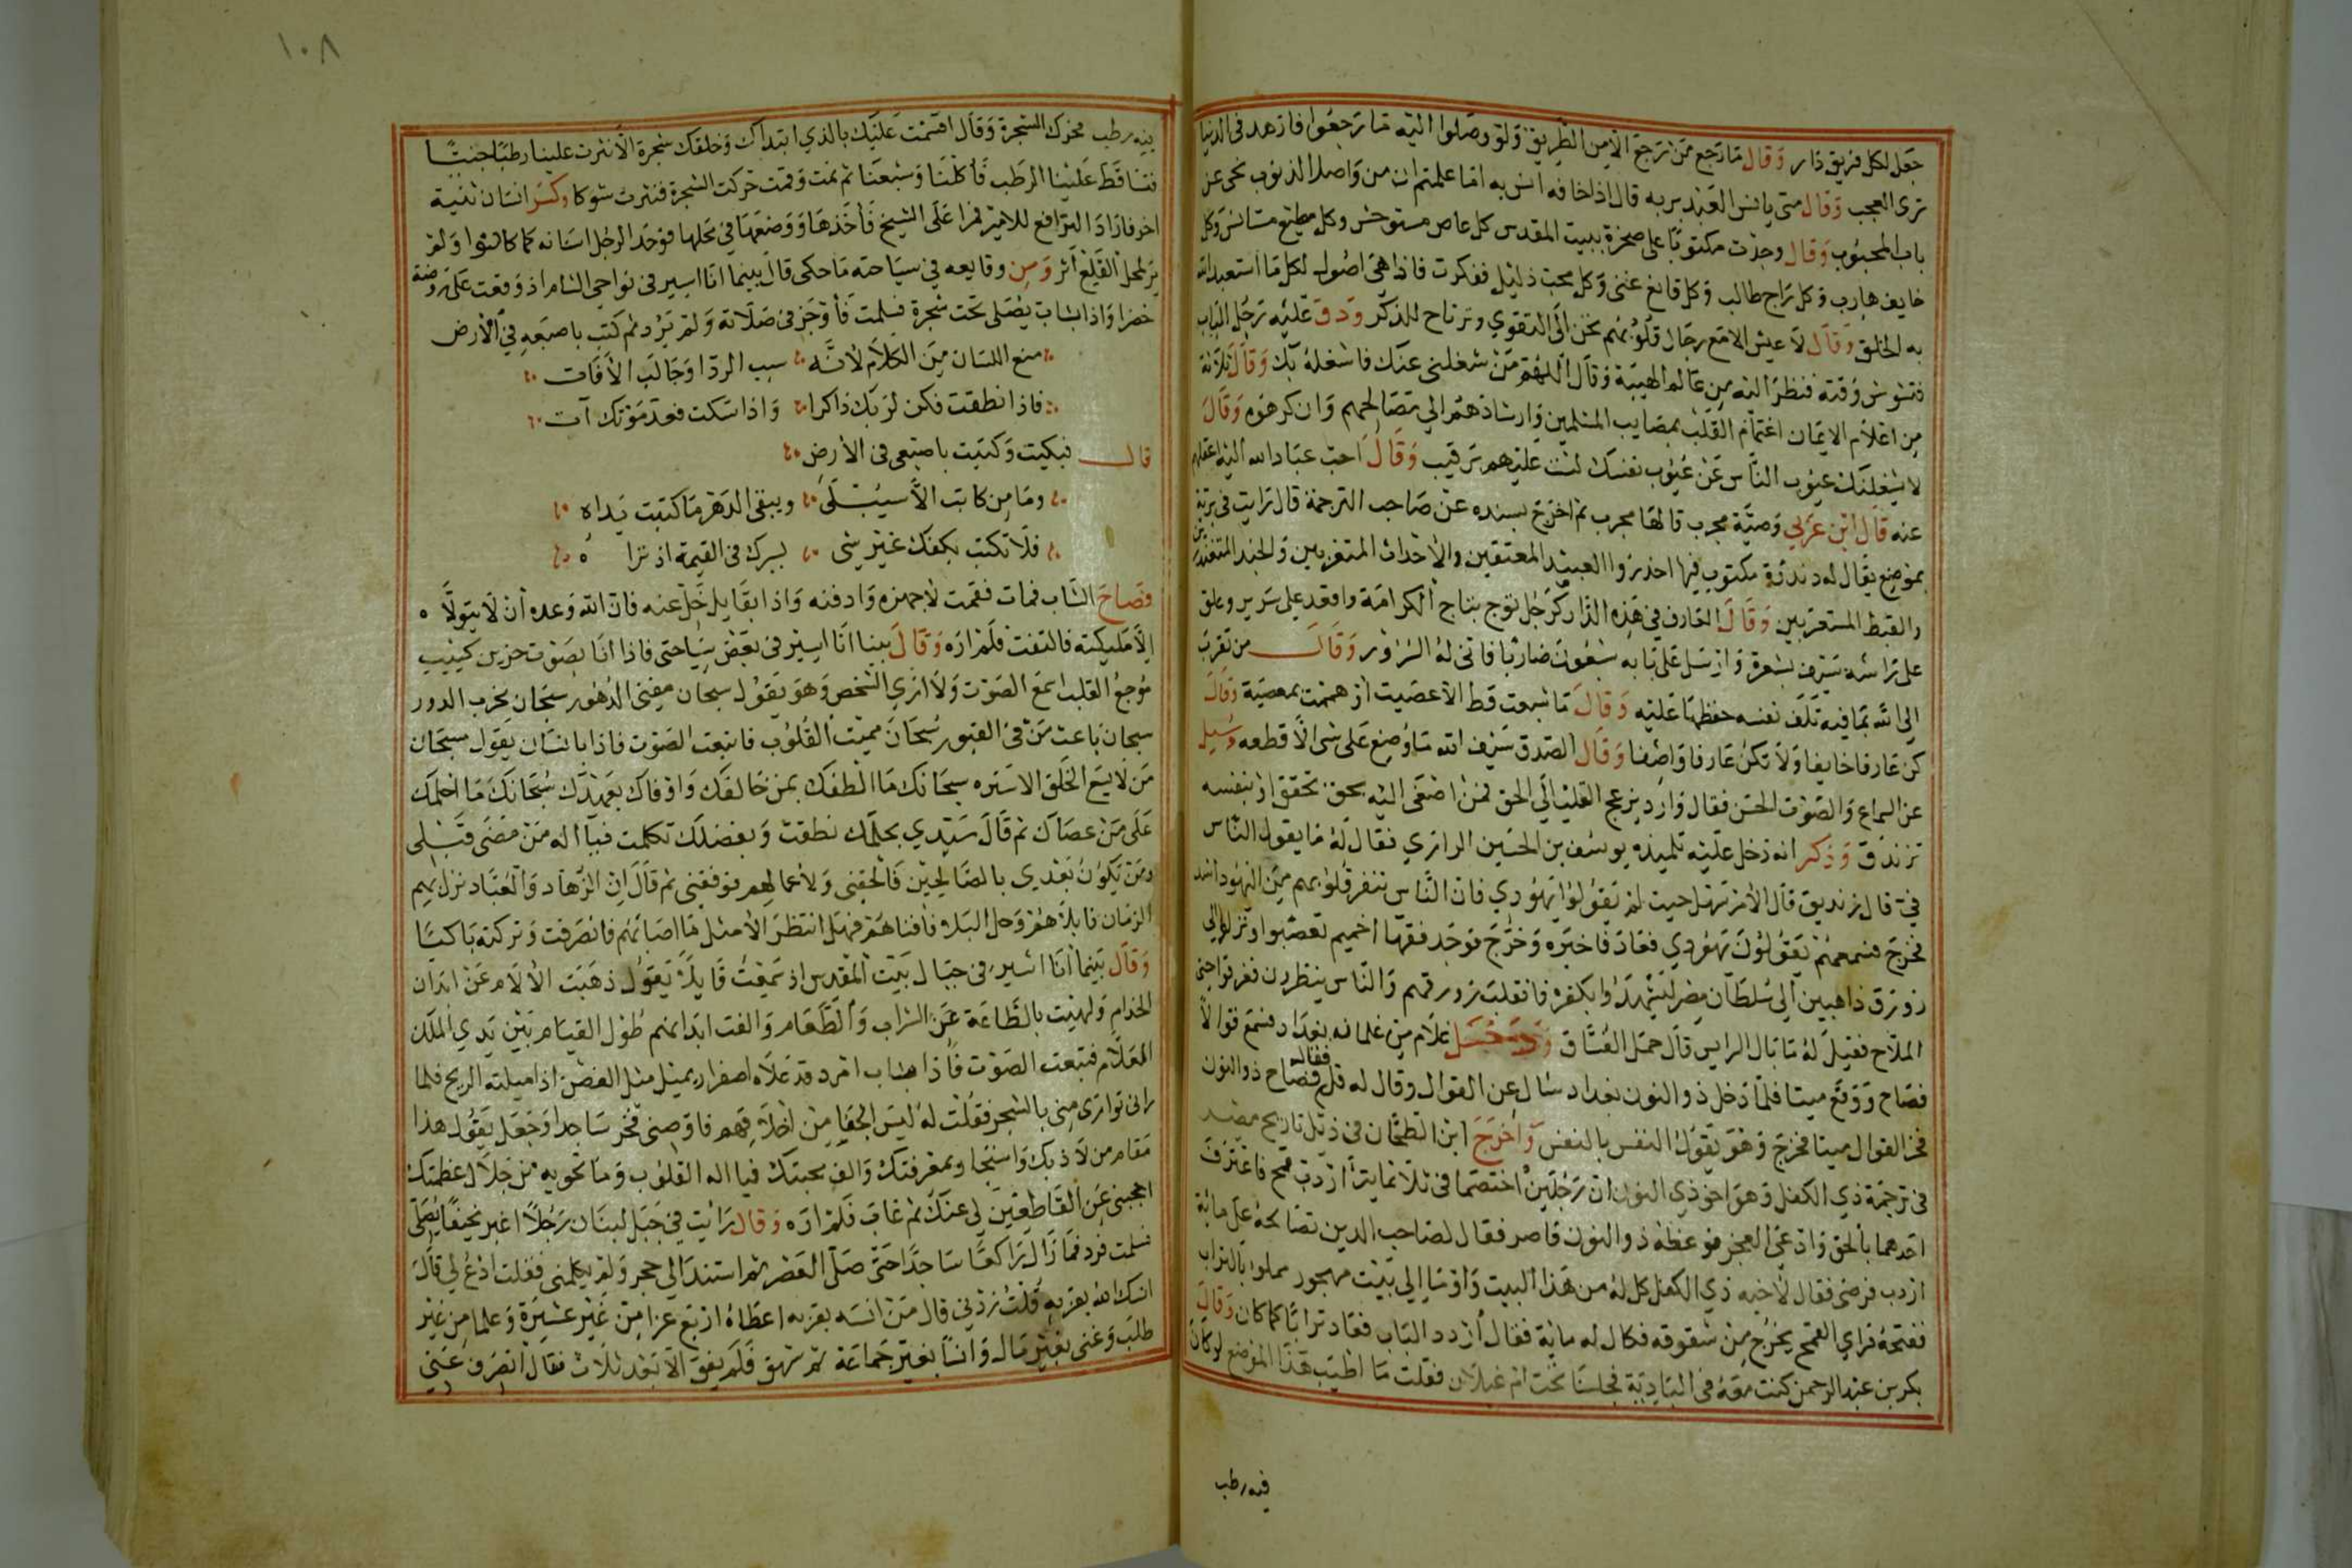 جعل لكل فريق دار وقال ما رجع من رجع الا من الطريق ولو وصلوا اليه ما رجعوا فازهد فى الدنيا
ترى العجب وقال متى يانس العبد بربه قال اذا خافه انس به اما علمتم ان من واصل الذنوب نحى عن
باب المحبوب وقال وجدت مكتوبا على صخرة ببيت المقدس كل عاص مستوحش وكل مطيع مستانس وكل
خايف هارب وكل راج طالب وكل قانع غنى وكل محب ذليل ففكرت فاذا هى اصول لكل ما استعبد الله
به الخلق وقال لا عيش الا مع رجال قلوبهم تحن الى التقوي وترتاح للذكر ودق عليه رجل الباب
فتشوش وقته فنظر اليه من عالم الهيبة وقال اللهم من شغلنى عنك فاشغله بك وقال ثلاثة
من اعلام الايمان اغتمام القلب بمصايب المسلمين وارشادهم الى مصالحهم وان كرهوه وقال
لا يشغلنك عيوب الناس عن عيوب نفسك لست عليهم برقيب وقال احب عباد الله اليه اعقلهم
عنه قال ابن عربي وصية مجرب قالها مجرب ثم اخرج بسنده عن صاحب الترجمة قال رايت فى بربة
بموضع يقال له دندرة مكتوب فيها احذروا العبيد المعتقين والاحداث المتقربين والجند المتعبدين
والقبط المستعربين وقال العارف في هذه الدار كرجل توج بتاج الكرامة واقعد على سرير وعلق
على راسه سيف بشعرة وارسل على بابه سبعون ضاريا فانى له السرور وقال من تقرب
الى الله بما فيه تلف نفسه حفظها عليه وقال ما شبعت قط الا عصيت او هممت بمعصية وقال
كن عارفا خايفا ولا تكن عارفا واصفا وقال الصدق سيف الله ما وضع على شى الا قطعه وسيل
عن السماع والصوت الحسن فقال وارد يزعج القلب الى الحق فمن اصغى اليه بحق تحقق او بنفسه
تزندق وذكر انه دخل عليه تلميذه يوسف بن الحسين الرازي فقال له ما يقول الناس
في قال زنديق قال الامر سهل حيث لم يقولوا يهودي فان الناس تنفر قلوبهم من اليهود اشد
فخرج فسمعهم يقولون يهودي فعاد فاخبره وخرج فوجد فقها اخميم تعصبوا ونزلوا في
زورق ذاهبين الى سلطان مصر ليشهدوا بكفره فانقلب زورقهم والناس ينظرون فغرقوا حتى
الملاح فقيل له ما بال الرايس قال حمل الفساق ودخل غلام من غلمانه بغداد فسمع قوالا
فصاح ووقع ميتا فلما دخل ذو النون بغداد سال عن القوال وقال له قل فقاله فصاح ذو النون
فخر القوال ميتا فخرج وهو يقول النفس بالنفس واخرج ابن الطحان فى ذيل تاريخ مصر
فى ترجمة ذي الكفل وهو اخو ذي النون ان رجلين اختصما فى ثلاثماية اردب قمح فاعترف
احدهما بالحق وادعى العجز فوعظه ذو النون قاصر فقال لصاحب الدين تصالحه على ماية
اردب فرضى فقال لاخيه ذي الكفل كل له من هذا البيت واوما الى بيت مهجور مملو بالتراب
ففتحه فراي القمح يخرج من شقوقه فكال له ماية فقال اردد الباب فعاد ترابا كما كان وقال
بكر بن عبد الرحمن كنت معه فى البادية فجلسنا تحت ام غيلان فقلت ما اطيب هذا الموضع لو كان
فيه رطب
١٠٨
فيه رطب فحرك الشجرة وقال اقسمت عليك بالذي ابتداك وخلقك شجرة الا نثرت علينا رطبا جنيا
فتساقط علينا الرطب فاكلنا وشبعنا ثم نمت وقمت حركت الشجرة فنثرت شوكا وكسر انسان ثنية
اخر فاراد الترافع للامير فمرا على الشيخ فاخذها ووضعها في محلها فوجد الرجل اسنانه كما كانوا ولم
ير لمحل القلع اثر ومن وقايعه في سياحته ما حكى قال بينما انا اسير فى نواحى الشام اذ وقعت على روضة
خضرا واذا بشاب يصلى تحت شجرة فسلمت فاوجز فى صلاته ولم يرد ثم كتب باصبعه في الارض
منع اللسان من الكلام لانه سبب الردا وجالب الافات
فاذا نطقت فكن لربك ذاكرا واذا سكت فعد موتك آت
قال فبكيت وكتبت باصبعى فى الارض
وما من كاتب الا سيبلى ويبقى الدهر ما كتبت يداه
فلا تكتب بكفك غير شى يسرك فى القيمة اذ ترا ه
فصاح الشاب فمات فقمت لاجهزه وادفنه واذا بقايل خل عنه فان الله وعده ان لا يتولاه
الا مليكته فالتفت فلم اره وقال بينا انا اسير فى بعض سياحتى فاذا انا بصوت حزين كئيب
موجع القلب اسمع الصوت ولا اري الشخص وهو يقول سبحان مفنى الدهور سبحان مخرب الدور
سبحان باعث من فى القبور سبحان مميت القلوب فاتبعت الصوت فاذا بانسان يقول سبحان
من لا يسع الخلق الا ستره سبحانك ما الطفك بمن خالفك واوفاك بعهدك سبحانك ما احلمك
على من عصاك ثم قال سيدي بحلمك نطقت وبفضلك تكلمت فيا اله من مضى قبلى
ومن يكون بعدي بالصالحين فالحقنى ولاعمالهم فوفقنى ثم قال اين الزهاد والعباد نزل بهم
الزمان فابلاهم وحل البلاء فافناهم فهل انتظر الا مثل ما اصابهم فانصرفت وتركته باكيا
وقال بينما انا اسير فى جبال بيت المقدس اذ سمعت قايلا يقول ذهبت الالام عن ابدان
الخدام ولهيت بالطاعة عن الشراب والطعام والفت ابدانهم طول القيام بين يدي الملك
العلام فتبعت الصوت فاذا بشاب امرد قد علاه اصفرار يميل مثل الغصن اذا ميلته الريح فلما
رانى توارى منى بالشجر فقلت له ليس الجفا من اخلاقهم فاوصنى فخر ساجدا وجعل يقول هذا
مقام من لاذ بك واستجار بمعرفتك والف محبتك فيا اله القلوب وما تحويه من جلال عظمتك
احجبنى عن القاطعين لى عنك ثم غاب فلم اره وقال رايت في جبل لبنان رجلا اغبر نحيفا يصلى
فسلمت فرد فما زال راكعا ساجدا حتى صلى العصر ثم استند الى حجر ولم يكلمنى فقلت ادع لي قال
انسك الله بقربه قلت زدنى قال من انسه بقربه اعطاه اربع عزا من غير عشيرة وعلما من غير
طلب وغنى بغير مال وانسا بغير جماعة ثم شهق فلم يفق الا بعد ثلاث فقال انصرف عني